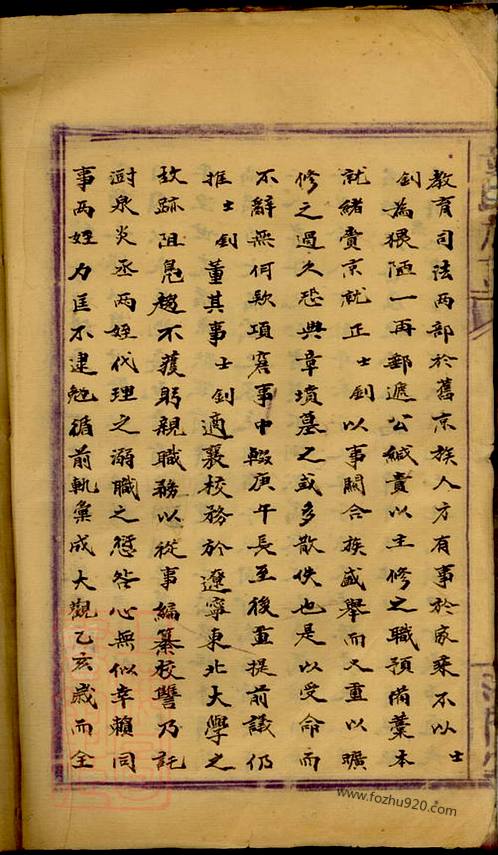 教育司法兩部於舊京族人方有事於家乘不以士
釗為猥陋一再郵遞公緘責以主修之職預備藁本
就緒賚京就正士釗以事關合族盛舉而又重以曠
修之過久恐典章墳墓之或多散佚也是以受命而
不辭無何款項窘事中輟庚午長至後重提前議仍
推士釗董其事士釗適襄校務於遼寧東北大學之
故跡阻鳧趨不獲躬親職務以從事編纂校讐乃託
澍泉炎丞兩姪代理之溺職之愆咎心無似幸賴司
事兩姪力匡不逮勉循前軌彙成大觀乙亥歲而全
www.fozhu920.com